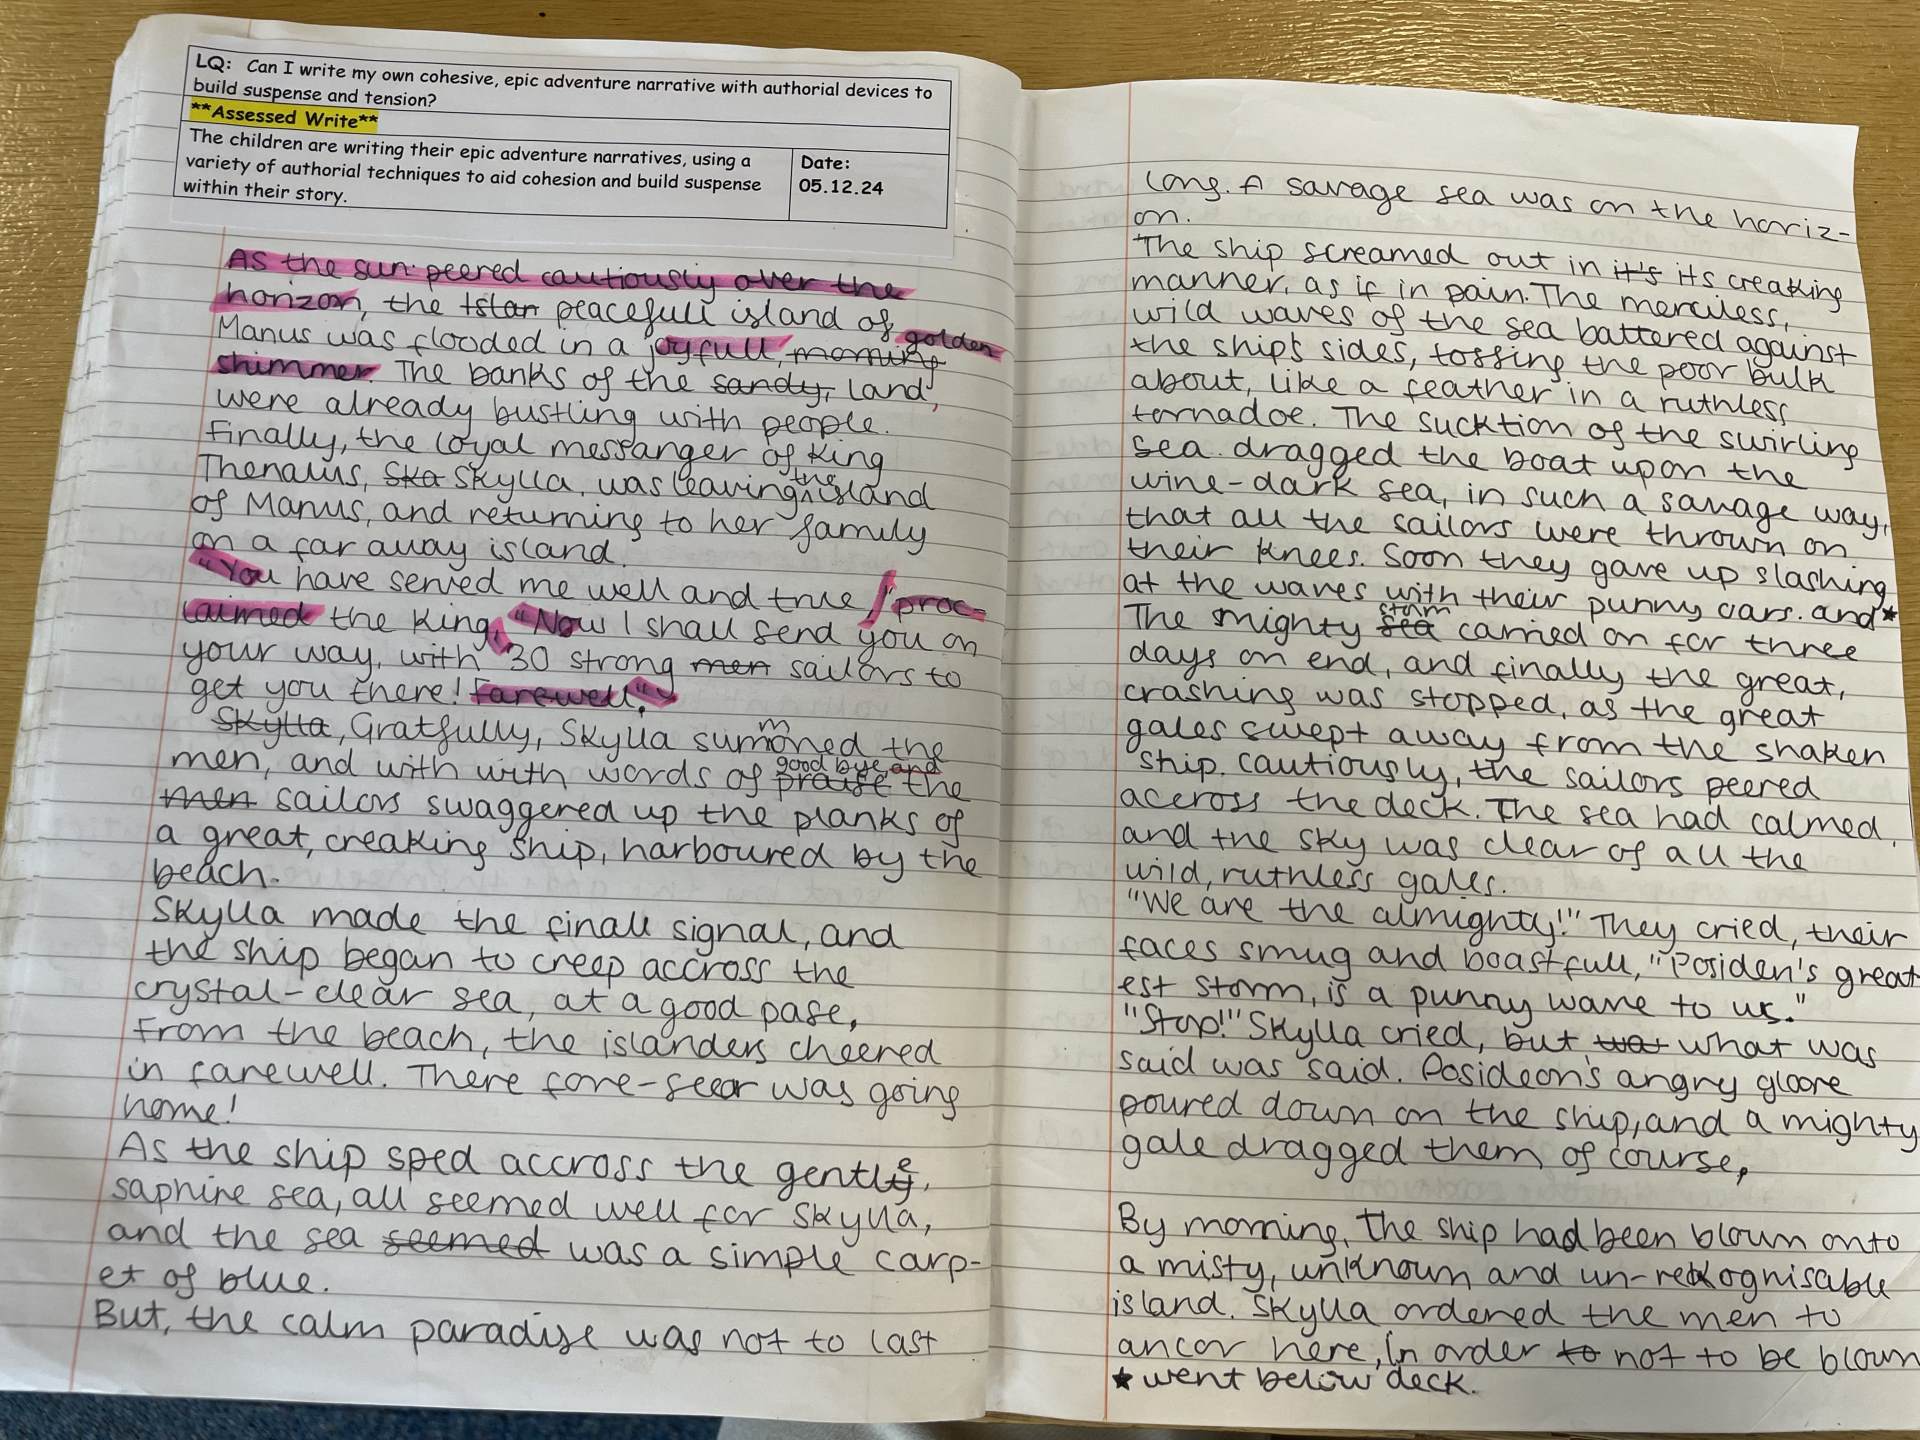 LQ: Can I write my own cohesive, epic adventure narrative with authorial devices to
build suspense and tension?
**Assessed Write**
The children are writing their epic adventure narratives, using a
variety of authorial techniques to aid cohesion and build suspense
within their story.
Date:
05.12.24
As the sun peered cautiously over the
horizon, the Islan peacefull island of
Manus was flooded in a joyfull, morning golden
shimmer. The banks of the sandy, land,
were already bustling with people.
Finally, the loyal messanger of King
Thenalus, Ska Skylla, was leaving the island
of Manus, and returning to her family
on a far away island.
"You have served me well and true," proc-
laimed the King, "Now I shall send you on
your way, with 30 strong men sailors to
get you there! Farewell."
Skylla, Gratfully, Skylla summoned the
men, and with with words of praise good bye and the
men sailors swaggered up the planks of
a great, creaking ship, harboured by the
beach.
Skylla made the finall signal, and
the ship began to creep accross the
crystal-clear sea, at a good pase,
From the beach, the islanders cheered
in farewell. There fore-seer was going
home!
As the ship sped accross the gentle,
saphire sea, all seemed well for Skylla,
and the sea seemed was a simple carp-
et of blue.
But, the calm paradise was not to last
long. A savage sea was on the horiz-
on.
The ship screamed out in it's its creaking
manner, as if in pain. The merciless,
wild waves of the sea battered against
the ship's sides, tossing the poor bulk
about, like a feather in a ruthless
tornadoe. The sucktion of the swirling
sea dragged the boat upon the
wine-dark sea, in such a savage way,
that all the sailors were thrown on
their knees. Soon they gave up slashing
at the waves with their punny oars. and*
The mighty sea storm carried on for three
days on end, and finally the great,
crashing was stopped, as the great
gales swept away from the shaken
ship. Cautiously, the sailors peered
aceross the deck. The sea had calmed,
and the sky was clear of all the
wild, ruthless gales.
"We are the almighty!" They cried, their
faces smug and boastfull, "Posiden's great
est storm, is a punny wave to us."
"Stop!" Skylla cried, but wat what was
said was said. Posideon's angry gloore
poured down on the ship, and a mighty
gale dragged them of course,
By morning, the ship had been blown onto
a misty, unknown and un-rekognisable
island. Skylla ordered the men to
ancor here, In order to not to be blown
* went below deck.